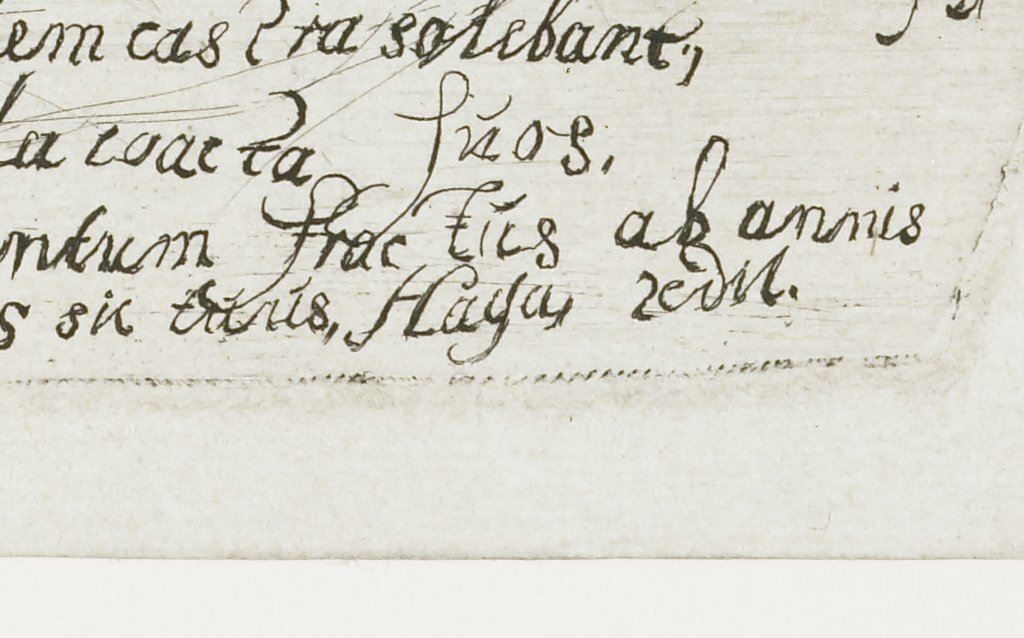 em castra solebant,
la coacta suos.
ntum fractus ab annis
s sic tutus, Haga, redit.